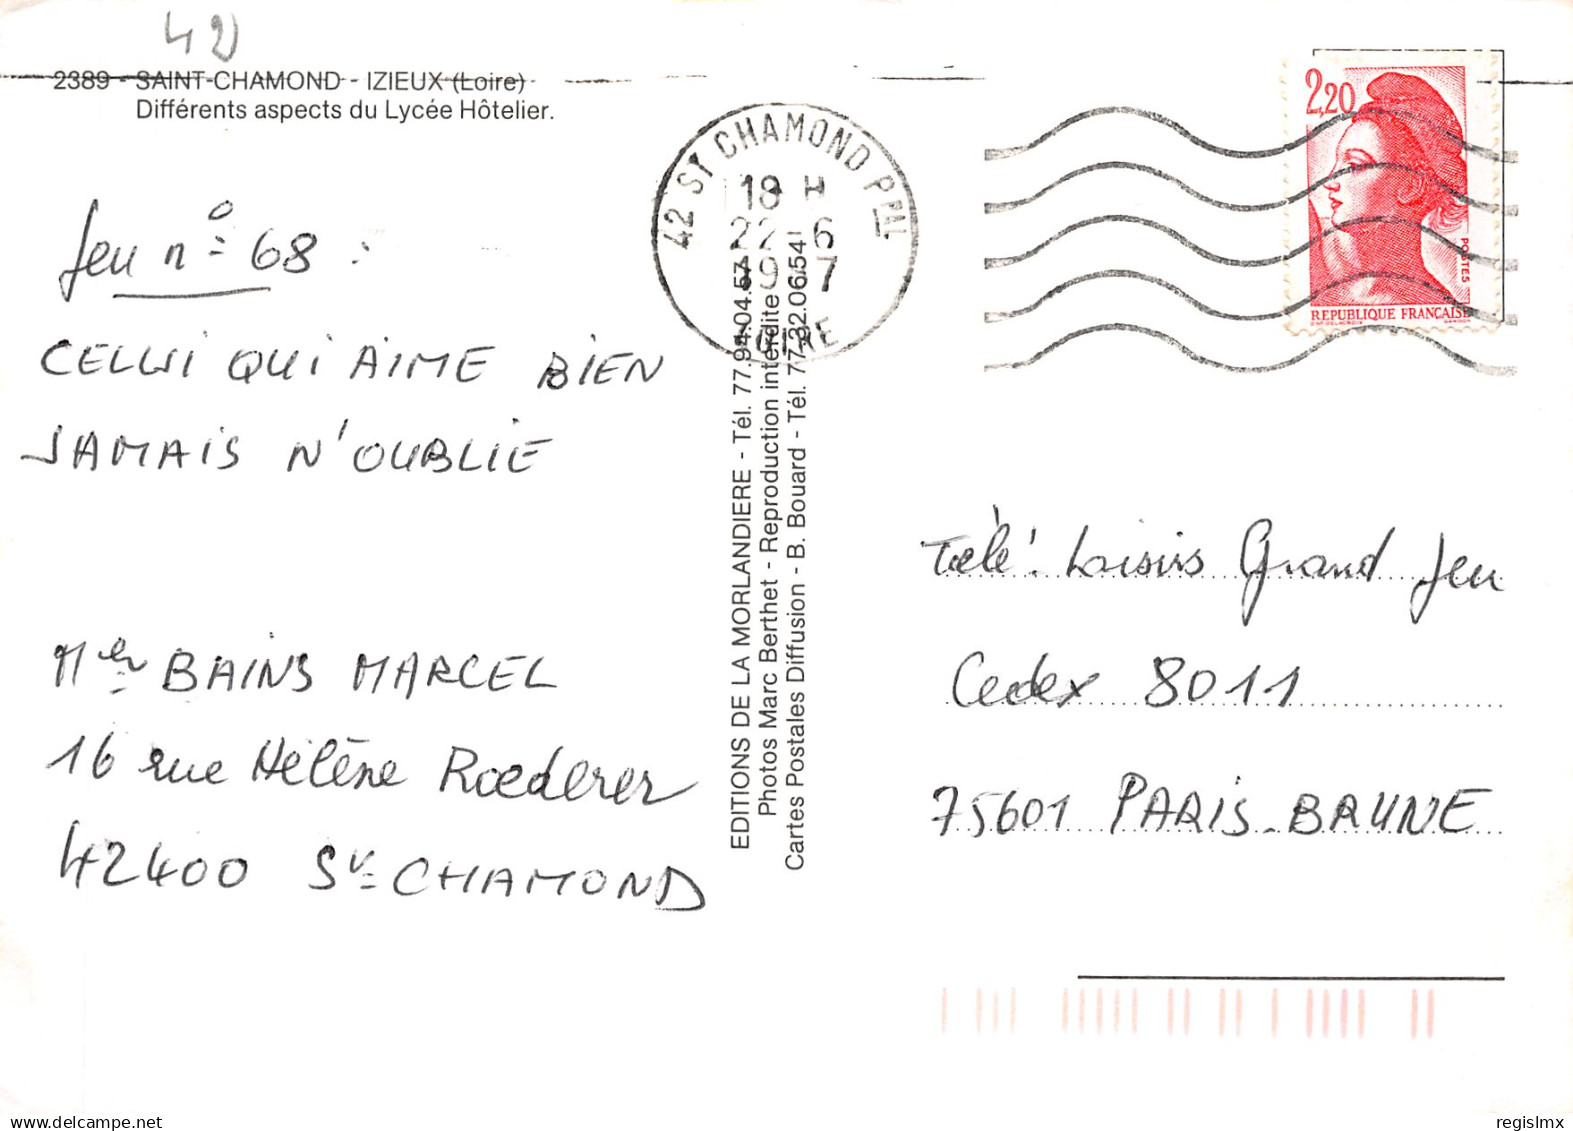 42
2389 - SAINT-CHAMOND - IZIEUX (Loire)
Différents aspects du Lycée Hôtelier.
Jeu n° 68 :
CELUI QUI AIME BIEN
JAMAIS N'OUBLIE
Mer BAINS MARCEL
16 rue Hélène Roederer
42400 St CHAMOND
EDITIONS DE LA MORLANDIERE - Tél. 77.94.04.57
Photos Marc Berthet - Reproduction interdite
Cartes Postales Diffusion - B. Bouard - Tél. 77.32.06.54
42 ST CHAMOND PPAL
18 H
22 - 6
19 7
LOIRE
2,20
POSTES
REPUBLIQUE FRANÇAISE
Télé Loisirs Grand Jeu
Cedex 8011
75601 PARIS-BRUNE
delcampe.net
regislmx